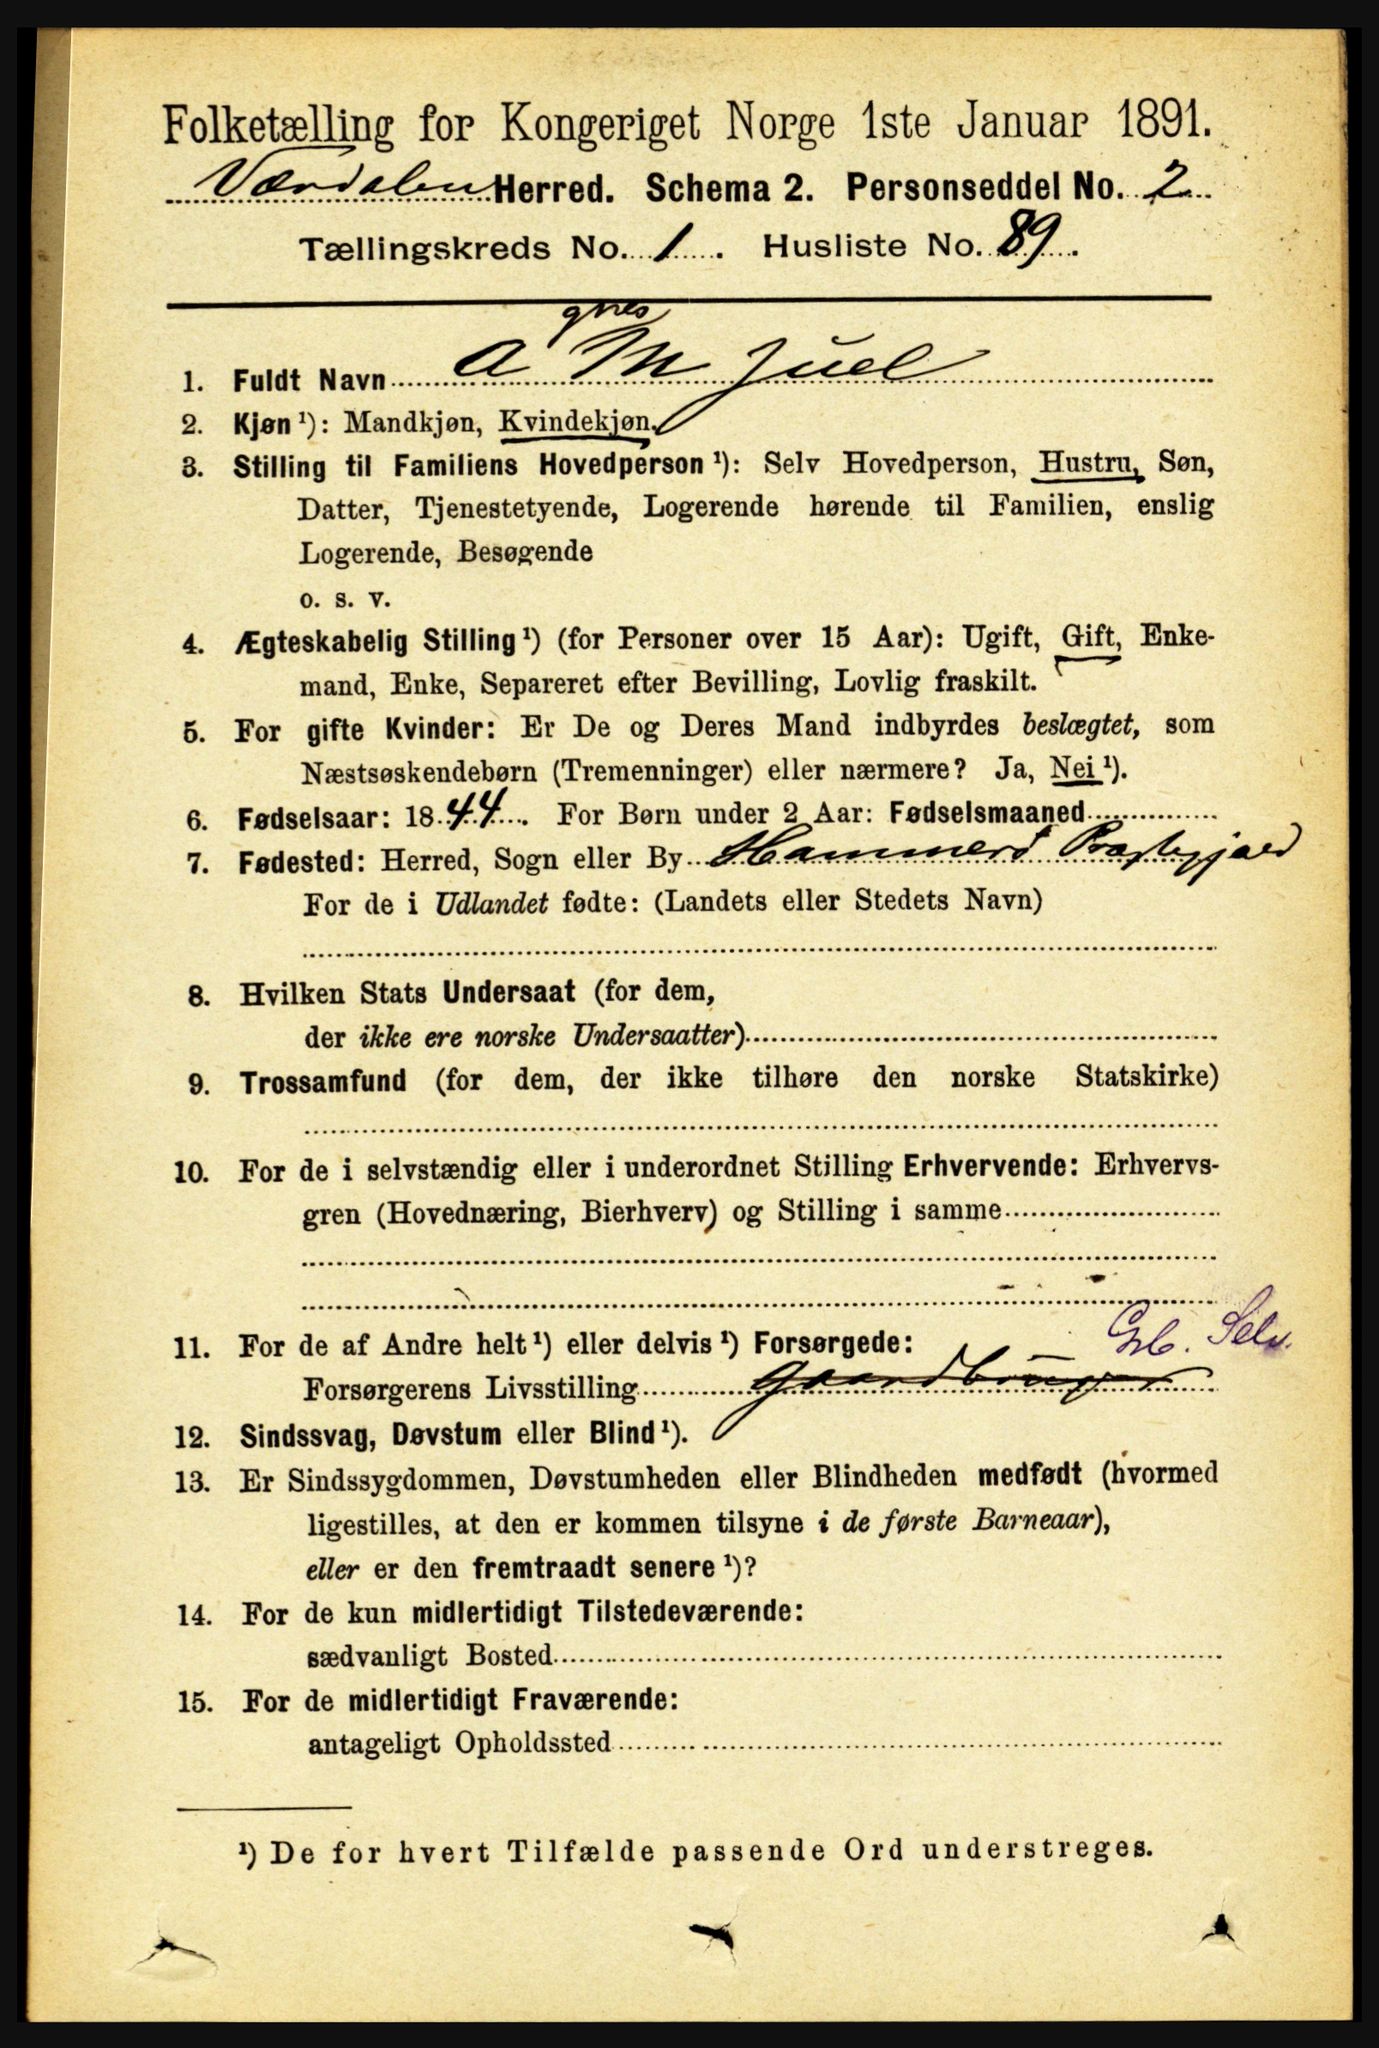 Folketælling for Kongeriget Norge 1ste Januar 1891.
Værdalen Herred. Schema 2. Personseddel No. 2
Tællingskreds No. 1. Husliste No. 89.
gnes
1. Fuldt Navn A M Juel
2. Kjøn ¹): Mandkjøn, Kvindekjøn.
3. Stilling til Familiens Hovedperson ¹): Selv Hovedperson, Hustru, Søn,
Datter, Tjenestetyende, Logerende hørende til Familien, enslig
Logerende, Besøgende
o. s. v.
4. Ægteskabelig Stilling ¹) (for Personer over 15 Aar): Ugift, Gift, Enke-
mand, Enke, Separeret efter Bevilling, Lovlig fraskilt.
5. For gifte Kvinder: Er De og Deres Mand indbyrdes beslægtet, som
Næstsøskendebørn (Tremenninger) eller nærmere? Ja, Nei ¹).
6. Fødselsaar: 1844. For Børn under 2 Aar: Fødselsmaaned
7. Fødested: Herred, Sogn eller By Hammers Præstegjæld
For de i Udlandet fødte: (Landets eller Stedets Navn)
8. Hvilken Stats Undersaat (for dem,
der ikke ere norske Undersaatter)
9. Trossamfund (for dem, der ikke tilhøre den norske Statskirke)
10. For de i selvstændig eller i underordnet Stilling Erhvervende: Erhvervs-
gren (Hovednæring, Bierhverv) og Stilling i samme
Grb. Selv.
11. For de af Andre helt ¹) eller delvis ¹) Forsørgede:
Forsørgerens Livsstilling Gaardbruger
12. Sindssvag, Døvstum eller Blind ¹).
13. Er Sindssygdommen, Døvstumheden eller Blindheden medfødt (hvormed
ligestilles, at den er kommen tilsyne i de første Barneaar),
eller er den fremtraadt senere ¹)?
14. For de kun midlertidigt Tilstedeværende:
sædvanligt Bosted
15. For de midlertidigt Fraværende:
antageligt Opholdssted
¹) De for hvert Tilfælde passende Ord understreges.